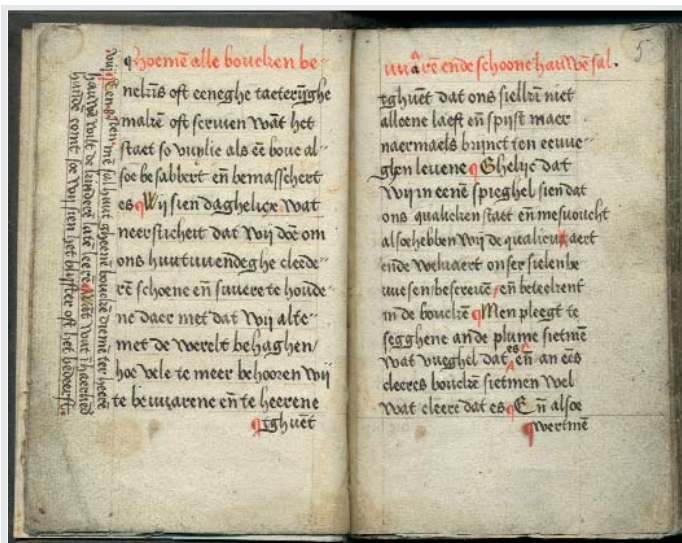 Hoemē alle boucken be=
nelzīs oft eeneghe taeterijghe
maken oft scriven wāt het
staet so vuylic als ēē bouc al=
soe besabbert eñ bemasschert
es Wij sien daghelicx wat
neersticheit dat wij doē om
ons huutwendeghe cleede=
rē schoene eñ suvere te houde=
ne daer met dat wij alte=
met de werelt behaghen/
hoe vele te meer behooren wij
te bewarene eñ te heerene
tghuēt
mē sal huut gheenē bouckē diemē ter heerē
hauwē wilt de kinderē latē leerē Wāt wat thaerlied
hande comt soe wij sien het blijfter oft het bederft
warē ende schoone hauwē sal.
5
tghuēt dat ons siellē niet
alleene laeft eñ spijst maer
naermaels brijnct ten eeuwe=
ghen levene Ghelijc dat
wij in eenē spieghel sien dat
ons qualicken staet eñ mesvoucht
alsoe hebben wij de qualicvaert
ende welvaert onser sielen be
wesen bescrevē/ eñ beteekent
in de bouckē Men pleegt te
segghene an de plume sietmē
wat vueghel dat es eñ an ēēs
cleercs bouckē sietmen wel
wat cleerc dat es Eñ alsoe
wertmē